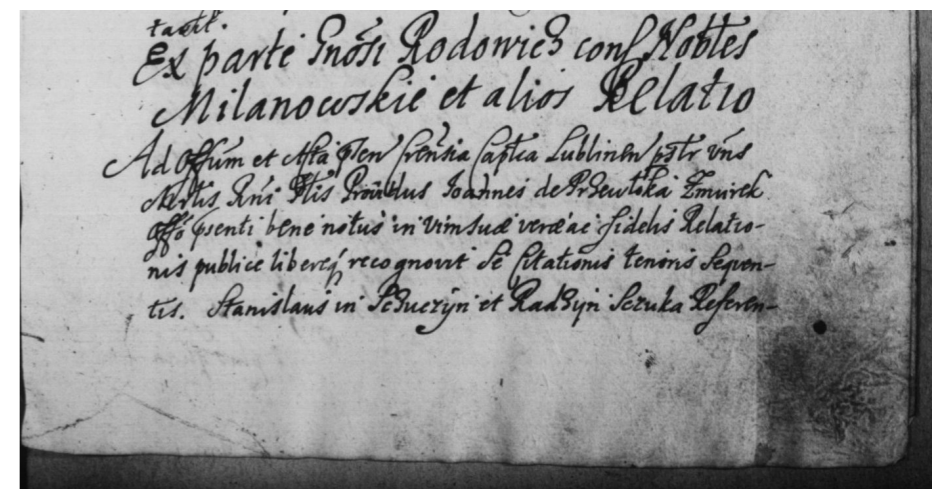 Ex parte Gnosi Rodowicz con Nobles
Milanowskie et alios Relatio
Ad Offum et Acta psen Crensia Captea Lublinen pstr vns
Mrtis Rni Ptis Providus Ioannes de Przewłoka Zmurek
Offo psenti bene notus in vim suæ veræ ac fidelis Relatio-
nis publice libereq recognovit Se Citationis tenoris Sequen-
tis. Stanislaus in Sczuczyn et Radzyn Sczuka Referen-